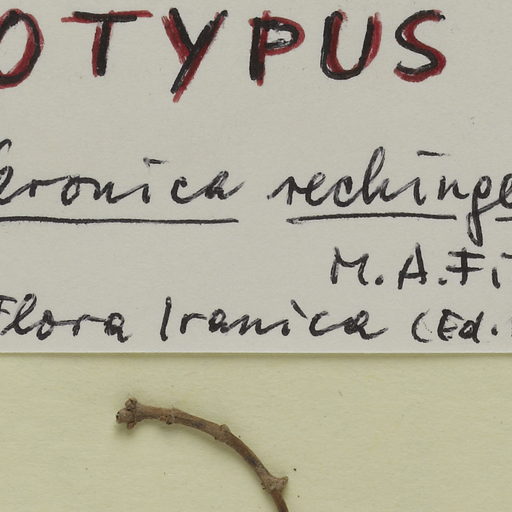 OTYPUS
eronica rechinge
M.A.Fi
Flora Iranica (Ed.